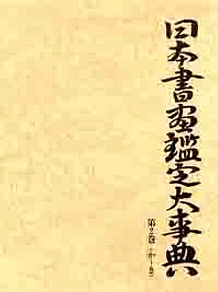 日本書画鑑定大事典
第2巻